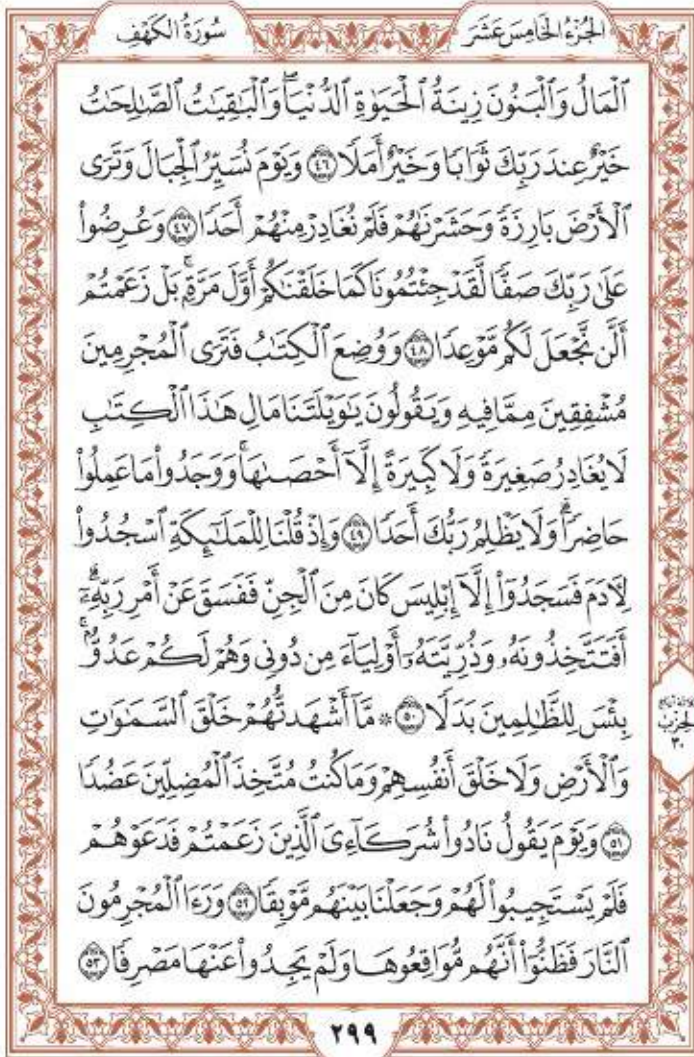 الجُزْءُ الخَامِسَ عَشَرَ
سُورَةُ الكَهْفِ
ٱلْمَالُ وَٱلْبَنُونَ زِينَةُ ٱلْحَيَوٰةِ ٱلدُّنْيَاۖ وَٱلْبَٰقِيَٰتُ ٱلصَّٰلِحَٰتُ
خَيْرٌ عِندَ رَبِّكَ ثَوَابًا وَخَيْرٌ أَمَلًا ٤٦ وَيَوْمَ نُسَيِّرُ ٱلْجِبَالَ وَتَرَى
ٱلْأَرْضَ بَارِزَةً وَحَشَرْنَٰهُمْ فَلَمْ نُغَادِرْ مِنْهُمْ أَحَدًا ٤٧ وَعُرِضُوا۟
عَلَىٰ رَبِّكَ صَفًّا لَّقَدْ جِئْتُمُونَا كَمَا خَلَقْنَٰكُمْ أَوَّلَ مَرَّةٍۭۚ بَلْ زَعَمْتُمْ
أَلَّن نَّجْعَلَ لَكُم مَّوْعِدًا ٤٨ وَوُضِعَ ٱلْكِتَٰبُ فَتَرَى ٱلْمُجْرِمِينَ
مُشْفِقِينَ مِمَّا فِيهِ وَيَقُولُونَ يَٰوَيْلَتَنَا مَالِ هَٰذَا ٱلْكِتَٰبِ
لَا يُغَادِرُ صَغِيرَةً وَلَا كَبِيرَةً إِلَّآ أَحْصَىٰهَاۚ وَوَجَدُوا۟ مَا عَمِلُوا۟
حَاضِرًاۗ وَلَا يَظْلِمُ رَبُّكَ أَحَدًا ٤٩ وَإِذْ قُلْنَا لِلْمَلَٰٓئِكَةِ ٱسْجُدُوا۟
لِءَادَمَ فَسَجَدُوٓا۟ إِلَّآ إِبْلِيسَ كَانَ مِنَ ٱلْجِنِّ فَفَسَقَ عَنْ أَمْرِ رَبِّهِۦٓۗ
أَفَتَتَّخِذُونَهُۥ وَذُرِّيَّتَهُۥٓ أَوْلِيَآءَ مِن دُونِى وَهُمْ لَكُمْ عَدُوٌّۢۚ
بِئْسَ لِلظَّٰلِمِينَ بَدَلًا ٥٠ ۞ مَّآ أَشْهَدتُّهُمْ خَلْقَ ٱلسَّمَٰوَٰتِ
وَٱلْأَرْضِ وَلَا خَلْقَ أَنفُسِهِمْ وَمَا كُنتُ مُتَّخِذَ ٱلْمُضِلِّينَ عَضُدًا
٥١ وَيَوْمَ يَقُولُ نَادُوا۟ شُرَكَآءِىَ ٱلَّذِينَ زَعَمْتُمْ فَدَعَوْهُمْ
فَلَمْ يَسْتَجِيبُوا۟ لَهُمْ وَجَعَلْنَا بَيْنَهُم مَّوْبِقًا ٥٢ وَرَءَا ٱلْمُجْرِمُونَ
ٱلنَّارَ فَظَنُّوٓا۟ أَنَّهُم مُّوَاقِعُوهَا وَلَمْ يَجِدُوا۟ عَنْهَا مَصْرِفًا ٥٣
الحزب
٣٠
٢٩٩